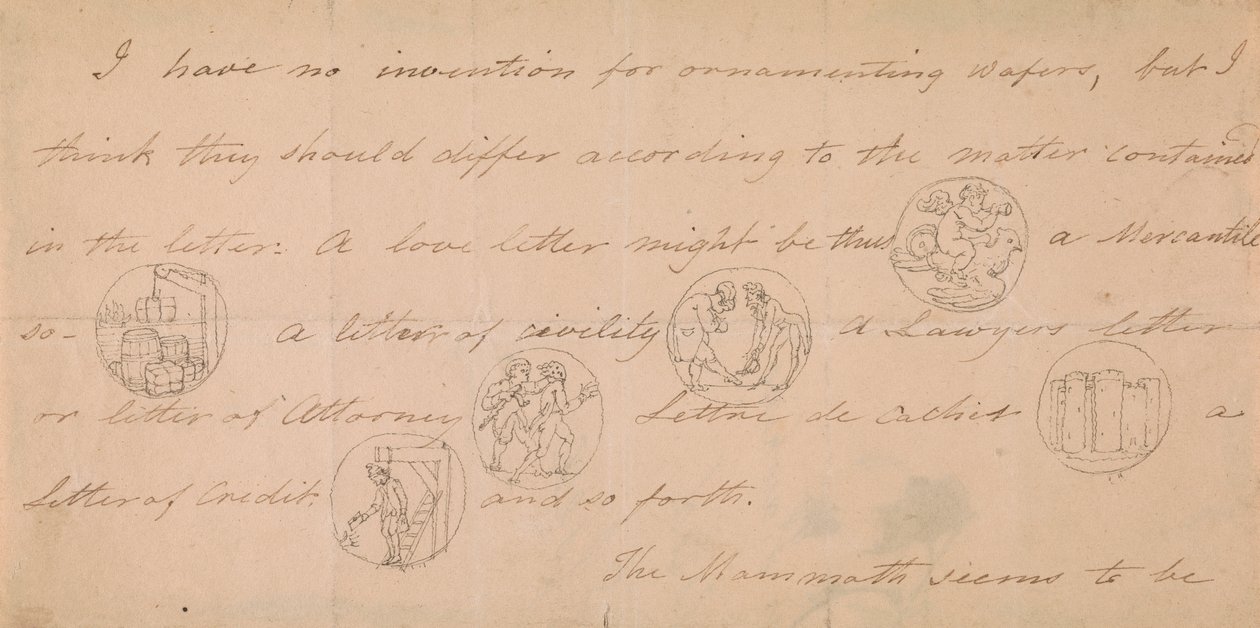 I have no invention for ornamenting wafers, but I
think they should differ according to the matter contained
in the letter: A love letter might be thus a Mercantile
so - a letter of civility A Lawyers letter
or letter of Attorney Lettre de cachet a
Letter of Credit. and so forth.
The Mammoth seems to be